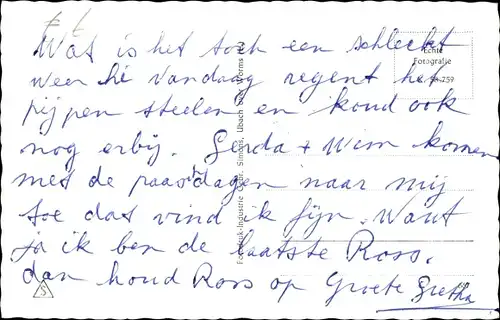 Wat is het toch een schleckt
weer hè vandaag regent het
pijpen steelen en koud ook
nog erbij. Gerda + Wim komen
met de paasdagen naar mij
toe dat vind ik fijn. Want
ja ik ben de laatste Ross.
dan houd Ross op Groete Gretha
Echte
Fotografie
259
S